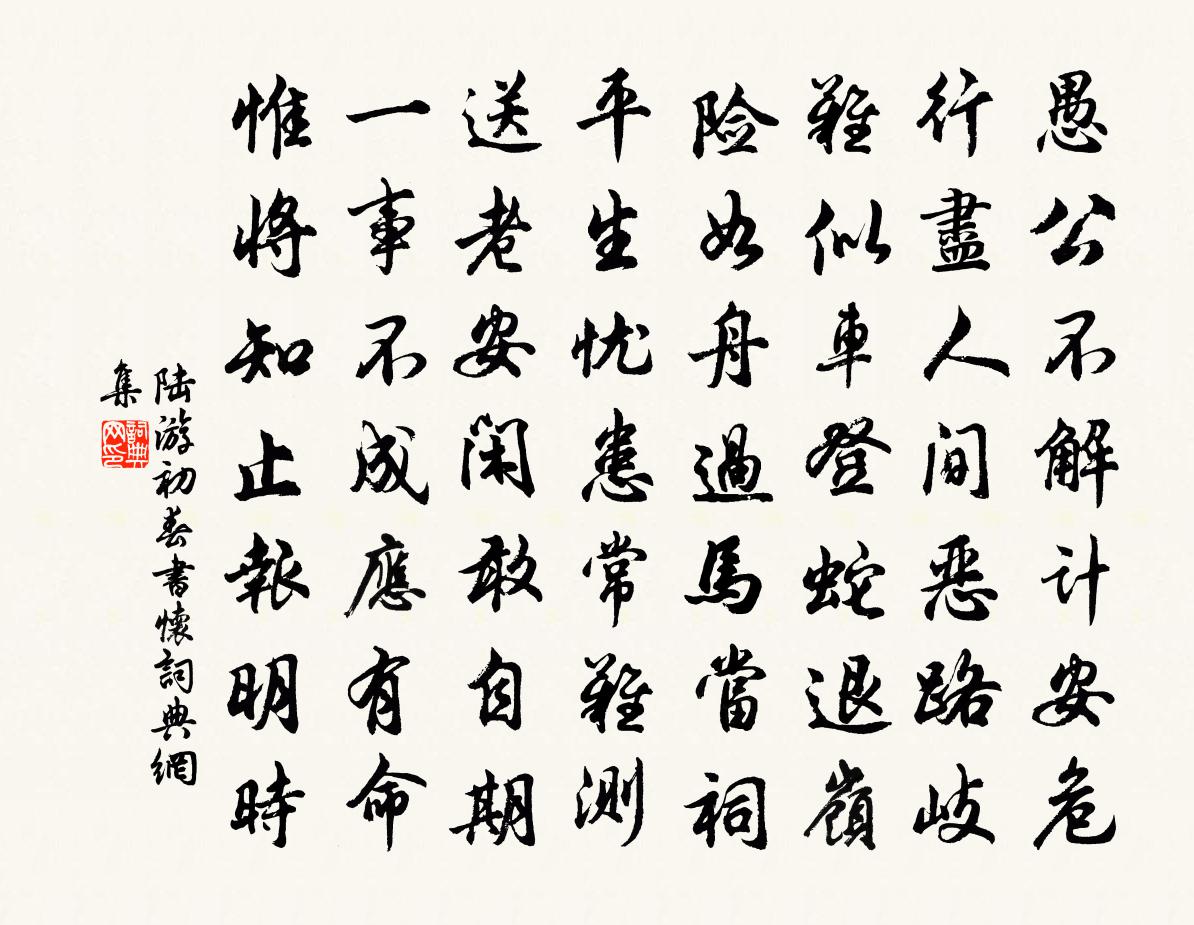 愚公不解計安危
行盡人間惡路岐
難似車登蛇退嶺
险如舟過馬當祠
平生忧患常難測
送老安閑敢自期
一事不成應有命
惟將知止報明時
陆游初春書懷詞典網
集
詞典网印